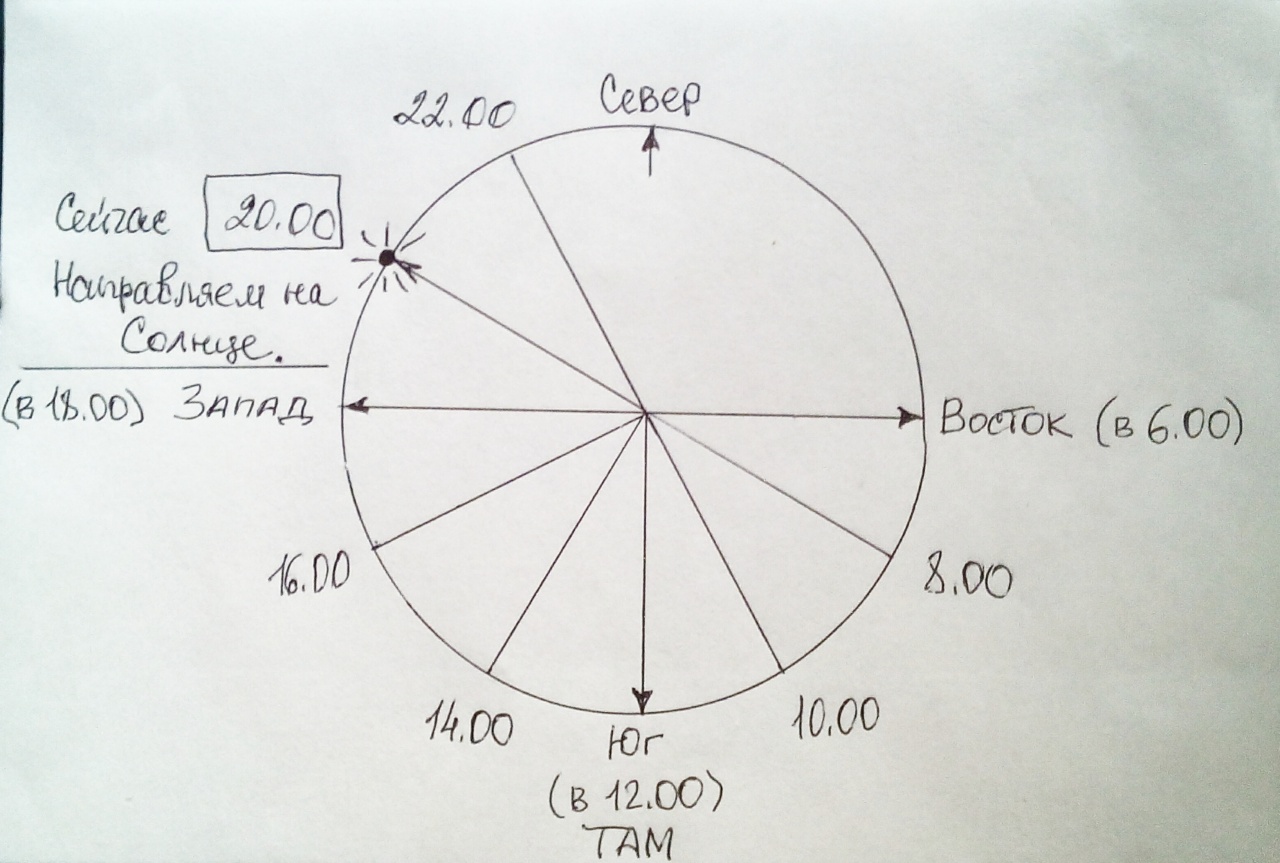 Север
22.00
Сейчас 20.00
Направляем на
Солнце.
(в 18.00) ЗАПАД
Восток (в 6.00)
16.00
8.00
14.00
10.00
Юг
(в 12.00)
ТАМ